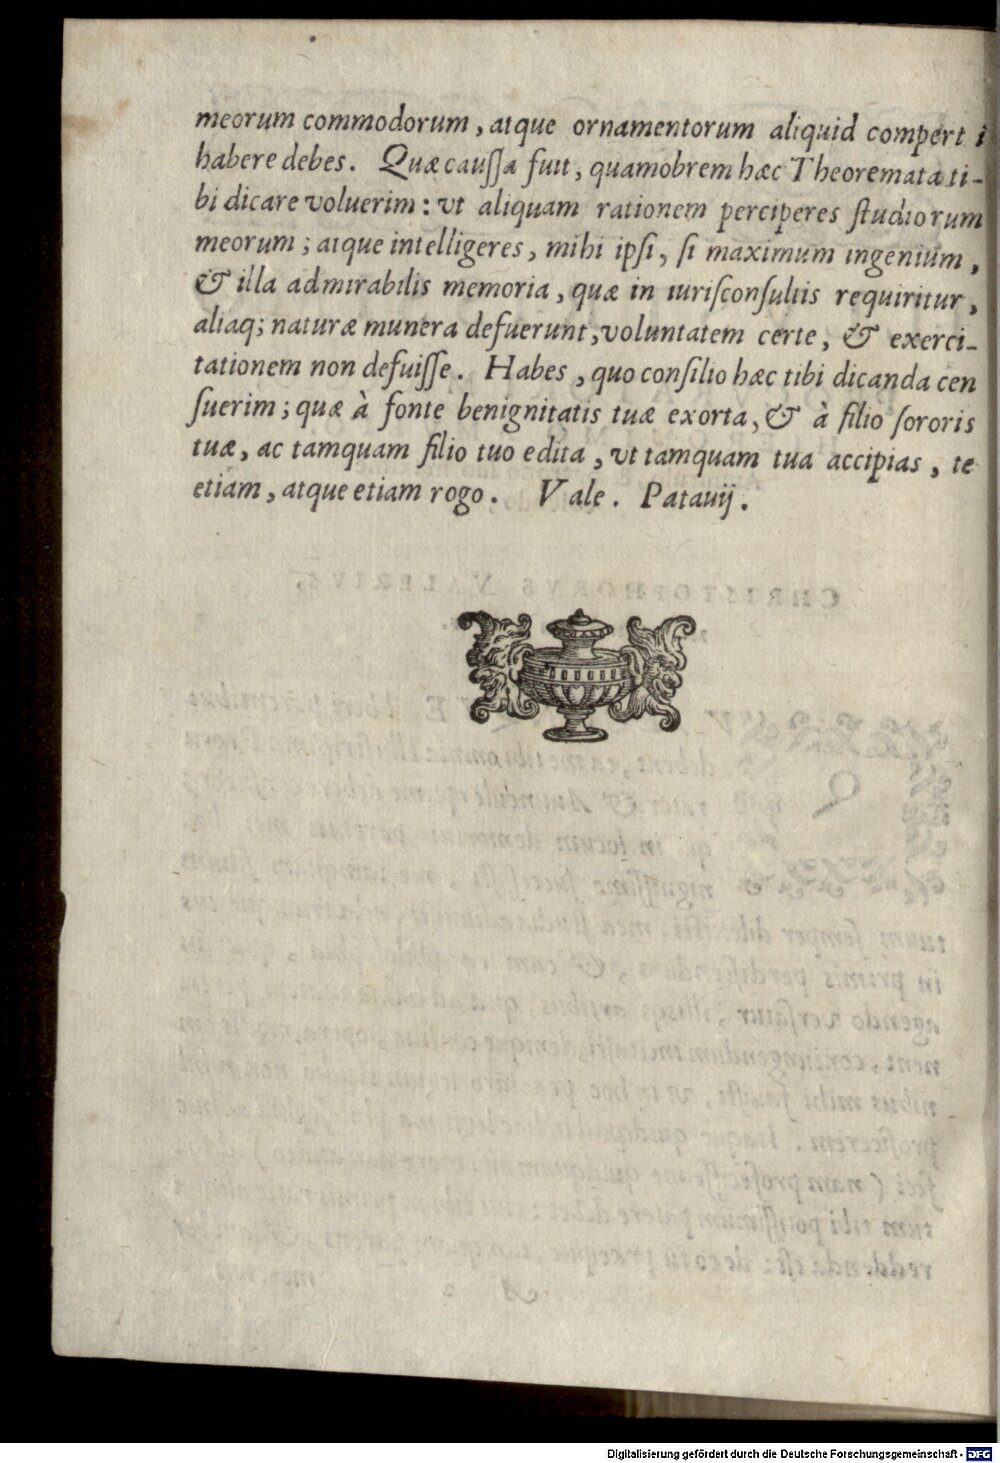 meorum commodorum, atque ornamentorum aliquid comperti
habere debes. Quæ caussa fuit, quamobrem hæc Theoremata ti-
bi dicare voluerim: vt aliquam rationem perciperes studiorum
meorum; atque intelligeres, mihi ipsi, si maximum ingenium,
& illa admirabilis memoria, quæ in iurisconsultis requiritur,
aliaq; naturæ munera defuerunt, voluntatem certe, & exerci-
tationem non defuisse. Habes, quo consilio hæc tibi dicanda cen
suerim; quæ à fonte benignitatis tuæ exorta, & à filio sororis
tuæ, ac tamquam filio tuo edita, vt tamquam tua accipias, te
etiam, atque etiam rogo. Vale. Patauij.
CHRISTOPHORVS VALERIVS,
Digitalisierung gefördert durch die Deutsche Forschungsgemeinschaft - DFG